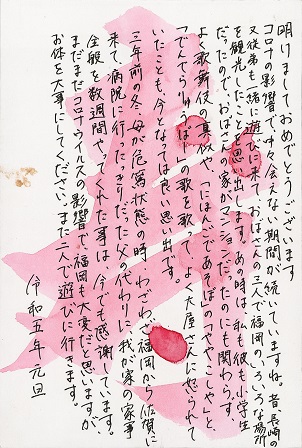 明けましておめでとうございます
コロナの影響で、中々会えない期間が続いていますね。昔、長崎の
又従弟も一緒に遊びに来て、おばさんの三人で福岡のいろいろな場所
を観光したことを思い出します。あの時は、私も彼も小学生
だったので、おばさんの家がマンションだったのにも関わらず、
よく歌舞伎の真似や、「にほんごであそぼ」の「ややこしや」と、
「でんでらりゅうば」の歌を歌って、よく大屋さんに怒られて
いたことも、今となっては良い思い出です。
三年前の冬、母が危篤状態の時、わざわざ福岡から佐賀に
来て、病院に行ったきりだった父の代わりに、我が家の家事
全般を数週間やってくれた事は、今でも感謝しています。
まだまだコロナウイルスの影響で、福岡も大変だと思いますが、
お体を大事にしてください。また二人で遊びに行きます。
令和五年 元旦